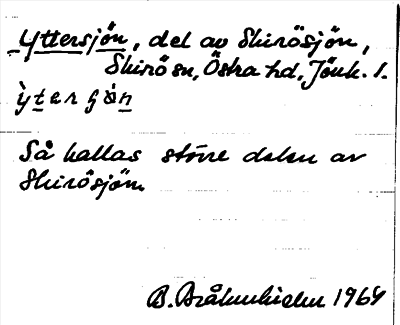 Yttersjön, del av Skirösjön,
Skirö sn, Östra hd, Jönk. l.
ỳtərʃòn
Så kallas större delen av
Skirösjön.
B. Bråkenhielm 1964